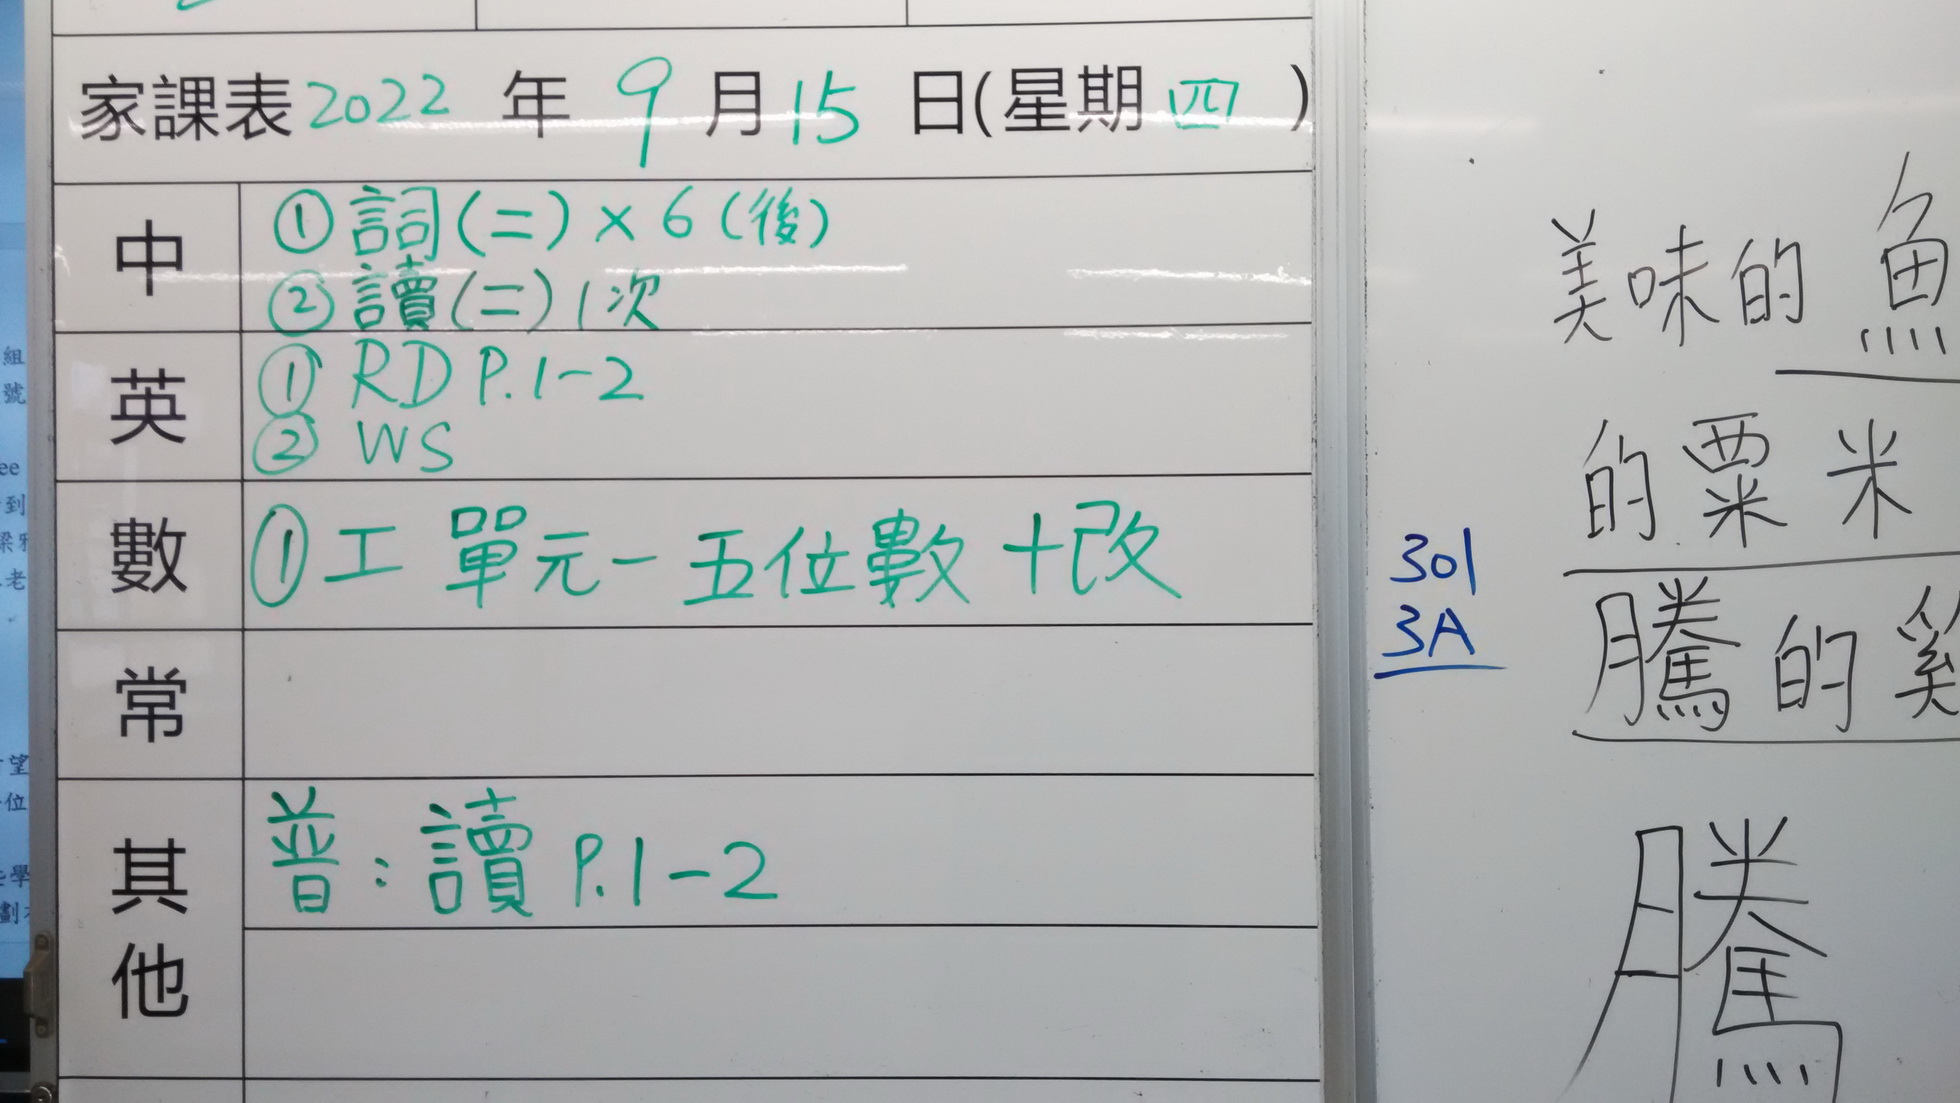 家課表 2022 年 9 月 15 日(星期 四 )
中
① 詞(二) × 6 (後)
② 讀(二) 1次
英
① RD P.1-2
② WS
數
① 工 單元一 五位數 + 改
常
其他
普：讀 P.1-2
301
3A
美味的魚
的粟米
騰的雞
騰
組
號
ee
到
老
望
位
學